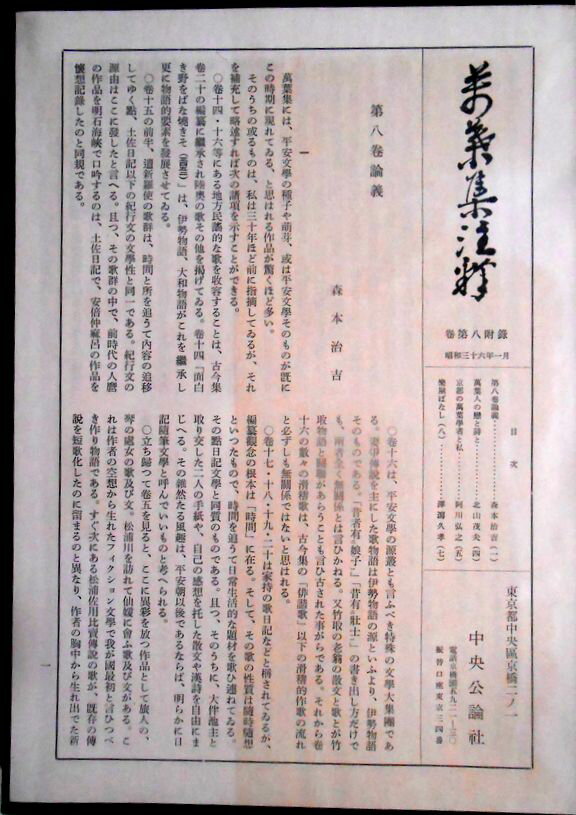 萬葉集注釋
卷第八附錄
昭和三十六年一月
目次
第八卷論義…………森本治吉（一）
萬葉人の戀と詩と…………北山茂夫（四）
京都の萬葉學者と私…………阿川弘之（五）
樂屋ばなし（八）…………澤瀉久孝（七）
東京都中央區京橋二ノ一
中央公論社
第八卷論義
森本治吉
一
萬葉集には、平安文學の種子や萌芽、或は平安文學そのものが既に
この時期に現れてゐる、と思はれる作品が驚くほど多い。
そのうちの或るものは、私は三十年ほど前に指摘してゐるが、それ
を補充して略述すれば次の諸項を示すことができる。
○卷十四・十六等にある地方民謠的な歌を收容することは、古今集
卷二十の編纂に繼承され陸奧の歌その他を揭げてゐる。卷十四「面白
き野をばな燒きそ（三四五二）」は、伊勢物語、大和物語がこれを繼承し
更に物語的要素を發展させてゐる。
○卷十五の前半、遣新羅使の歌群は、時間と所を追うて內容の追移
してゆく點、土佐日記以下の紀行文の文學性と同一である。紀行文の
源由はここに發したと言へる。且つ、その歌群の中で、前時代の人麿
の作品を明石海峽で口吟するのは、土佐日記で、安倍仲麻呂の作品を
懷想記錄したのと同規である。
○卷十六は、平安文學の源叢とも言ふべき特殊の文學大集團であ
る。妻爭傳說を主にした歌物語は伊勢物語の源といふより、伊勢物語
そのものである。「昔者有娘子」「昔有壯士」の書き出し方だけで
も、兩者全く無關係とは言ひかねる。又竹取の老翁の散文と歌とが竹
取物語と關聯があらうことも言ひ古された事がらである。それから卷
十六の數々の滑稽歌は、古今集の「俳諧歌」以下の滑稽的作歌の流れ
と必ずしも無關係ではないと思はれる。
○卷十七・十八・十九・二十は家持の歌日記などと稱されてゐるが、
編纂觀念の根本は「時間」に在る。そして、その歌の性質は隨時隨想
といつたもので、時間を追うて日常生活的な題材を歌ひ連ねてゐる。
その點日記文學と同質のものである。且つ、そのうちに、大伴池主と
取り交した二人の手紙や、自己の感想を托した散文や漢詩を自由にま
じへる。その雜然たる風趣は、平安朝以後であるならば、明らかに日
記隨筆文學と呼んでいいものと考へられる。
○立ち歸つて卷五を見ると、ここに異彩を放つ作品として旅人の、
琴の處女の歌及び文。松浦川を訪れて仙媛に會ふ歌及び文がある。こ
れは作者の空想から生れたフィクション文學で我が國最初と言ひつべ
き作り物語である。すぐ次にある松浦佐用比賣傳說の歌が、既存の傳
說を短歌化したのに留まるのと異なり、作者の胸中から生れ出でた新
一